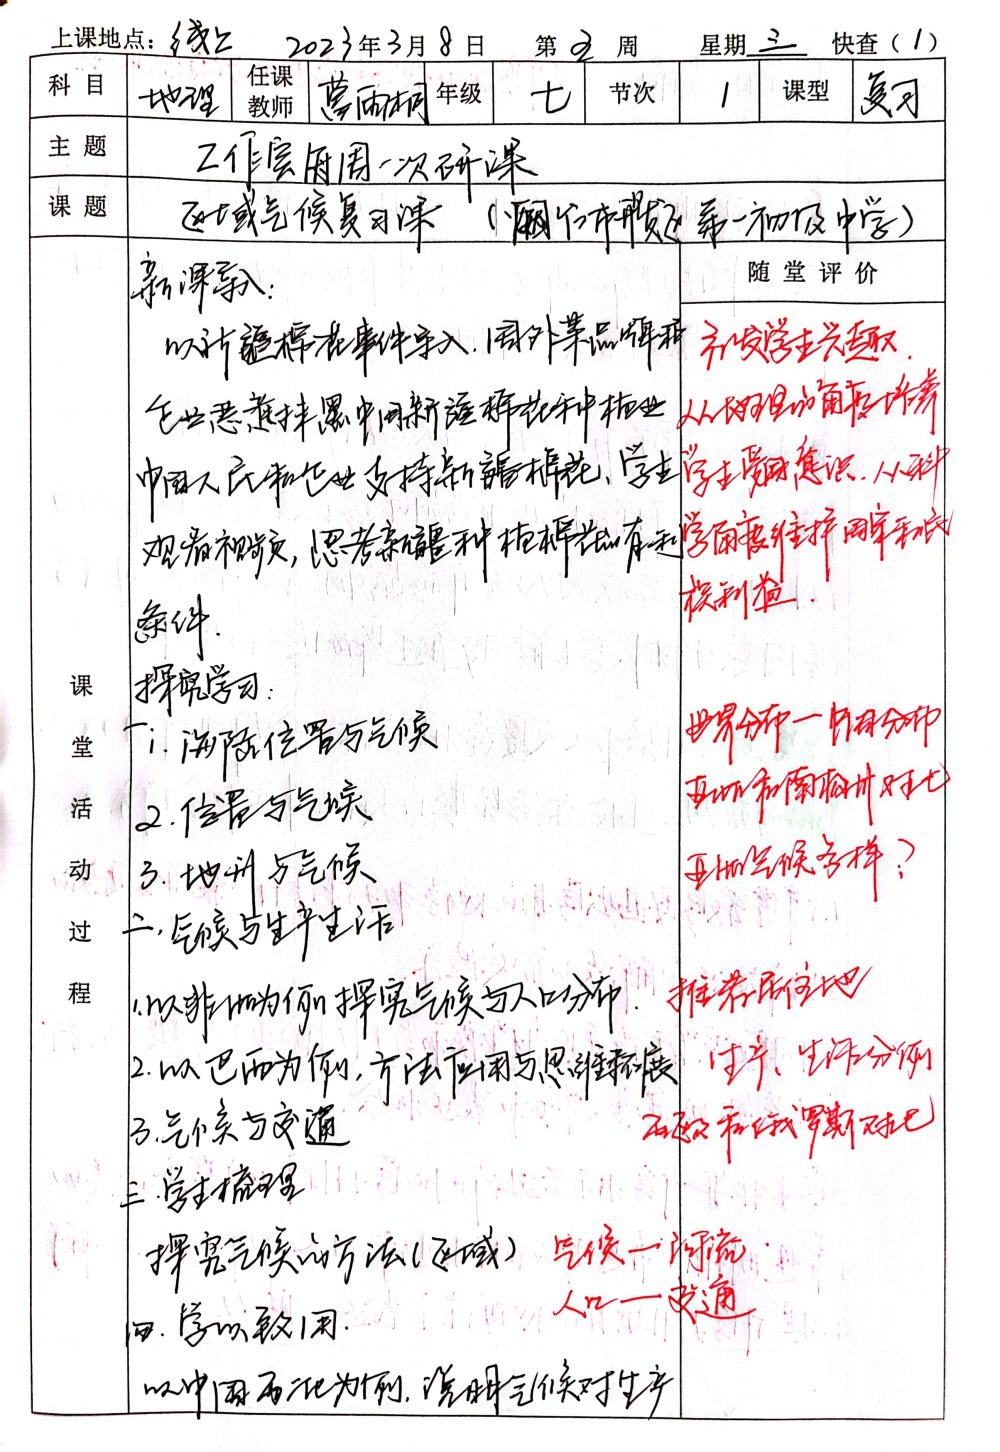 上课地点：线上 2023年3月8日 第 周 星期三 快查（1）
科目 地理 任课教师 雨桐 年级 七 节次 1 课型 复习
主题 工作室每周一次研课
课题 区域气候复习课 （ 市 第一初级中学）
随堂评价
课堂活动过程
新课导入：
以新疆棉花事件导入，国外某品牌和
企业恶意抹黑中国新疆棉花种植业
中国人民和企业支持新疆棉花，学生
观看视频，思考新疆种植棉花的有利
条件.
探究学习：
一1.海陆位置与气候
2.位置与气候
3.地形与气候
二.气候与生产生活
1.以非洲为例探究气候与人口分布.
2.以巴西为例，方法应用与思维拓展
3.气候与交通
三.学生梳理
探究气候的方法(区域)
四.学以致用.
以中国西北为例，说明气候对生产
引发学生兴趣.
从地理的角度培养
学生爱国意识.从科
学角度维护国家和民
族利益.
世界分布一 分布
亚洲和南极洲对比
亚洲气候多样？
推荐居住地
生产、生活分例
西欧和俄罗斯对比
气候一河流
人口一交通